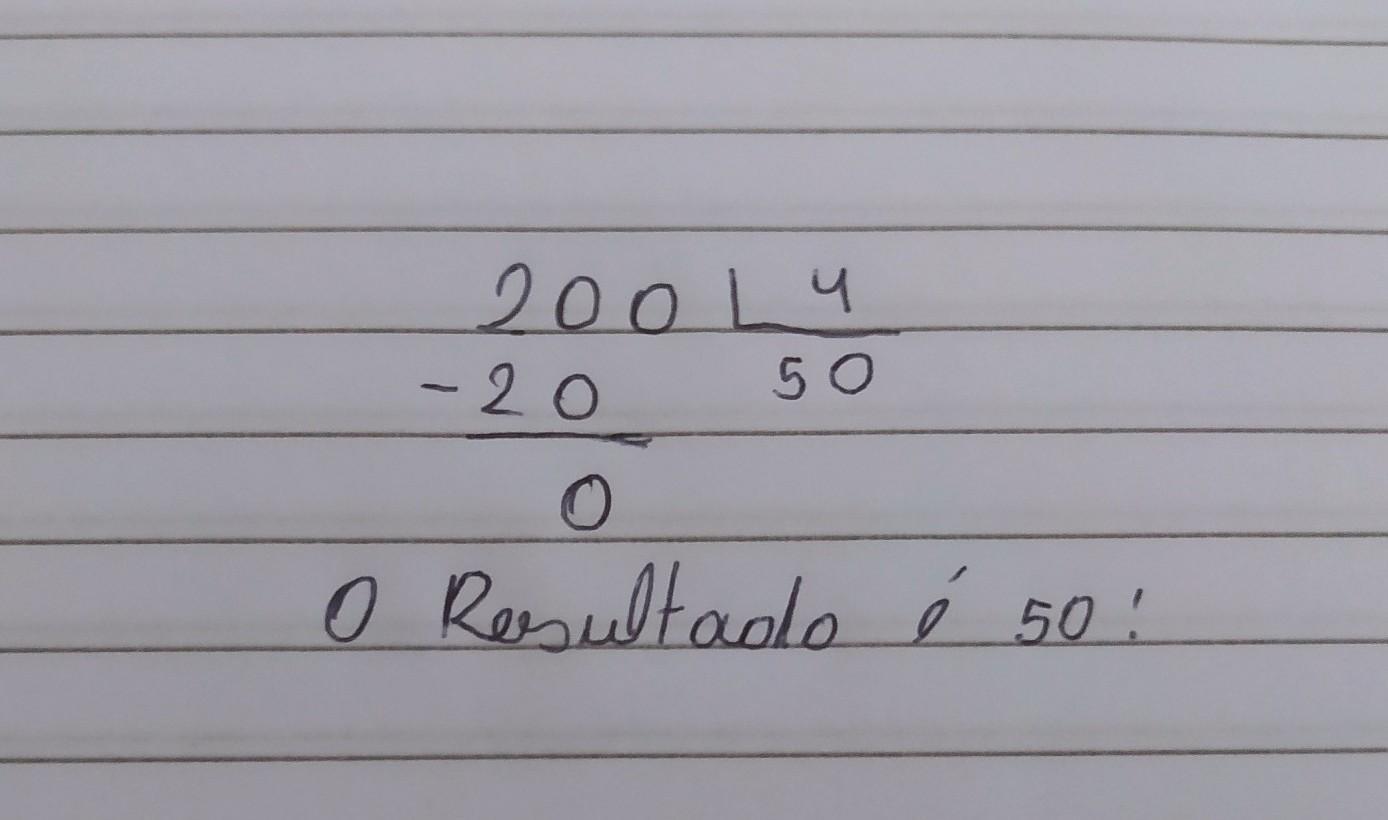 200 | 4
-20 50
0
O Resultado é 50!